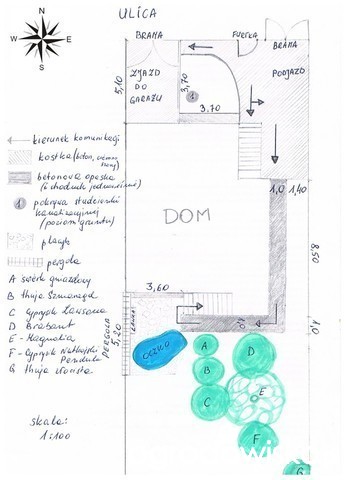 ULICA
N
W
E
S
BRAMA
FURTKA
BRAMA
ZJAZD
DO
GARAŻU
PODJAZD
5,10
3,70
1
3,70
kierunek komunikacji
kostka
betonowa opaska
1
pokrywa studzienki
kanalizacyjnej
(poziom gruntu)
pergola
A świerk gniazdowy
B thuja Szmaragd
C Cyprysik Lawsona
D Brabant
E - Magnolia
F - Cyprysik Nutkajski
Pendula
G thuja
skala:
1:100
DOM
1,0
1,40
8,50
3,60
PERGOLA
5,20
1,0
1,0
OCZKO
A
B
C
D
E
F
G